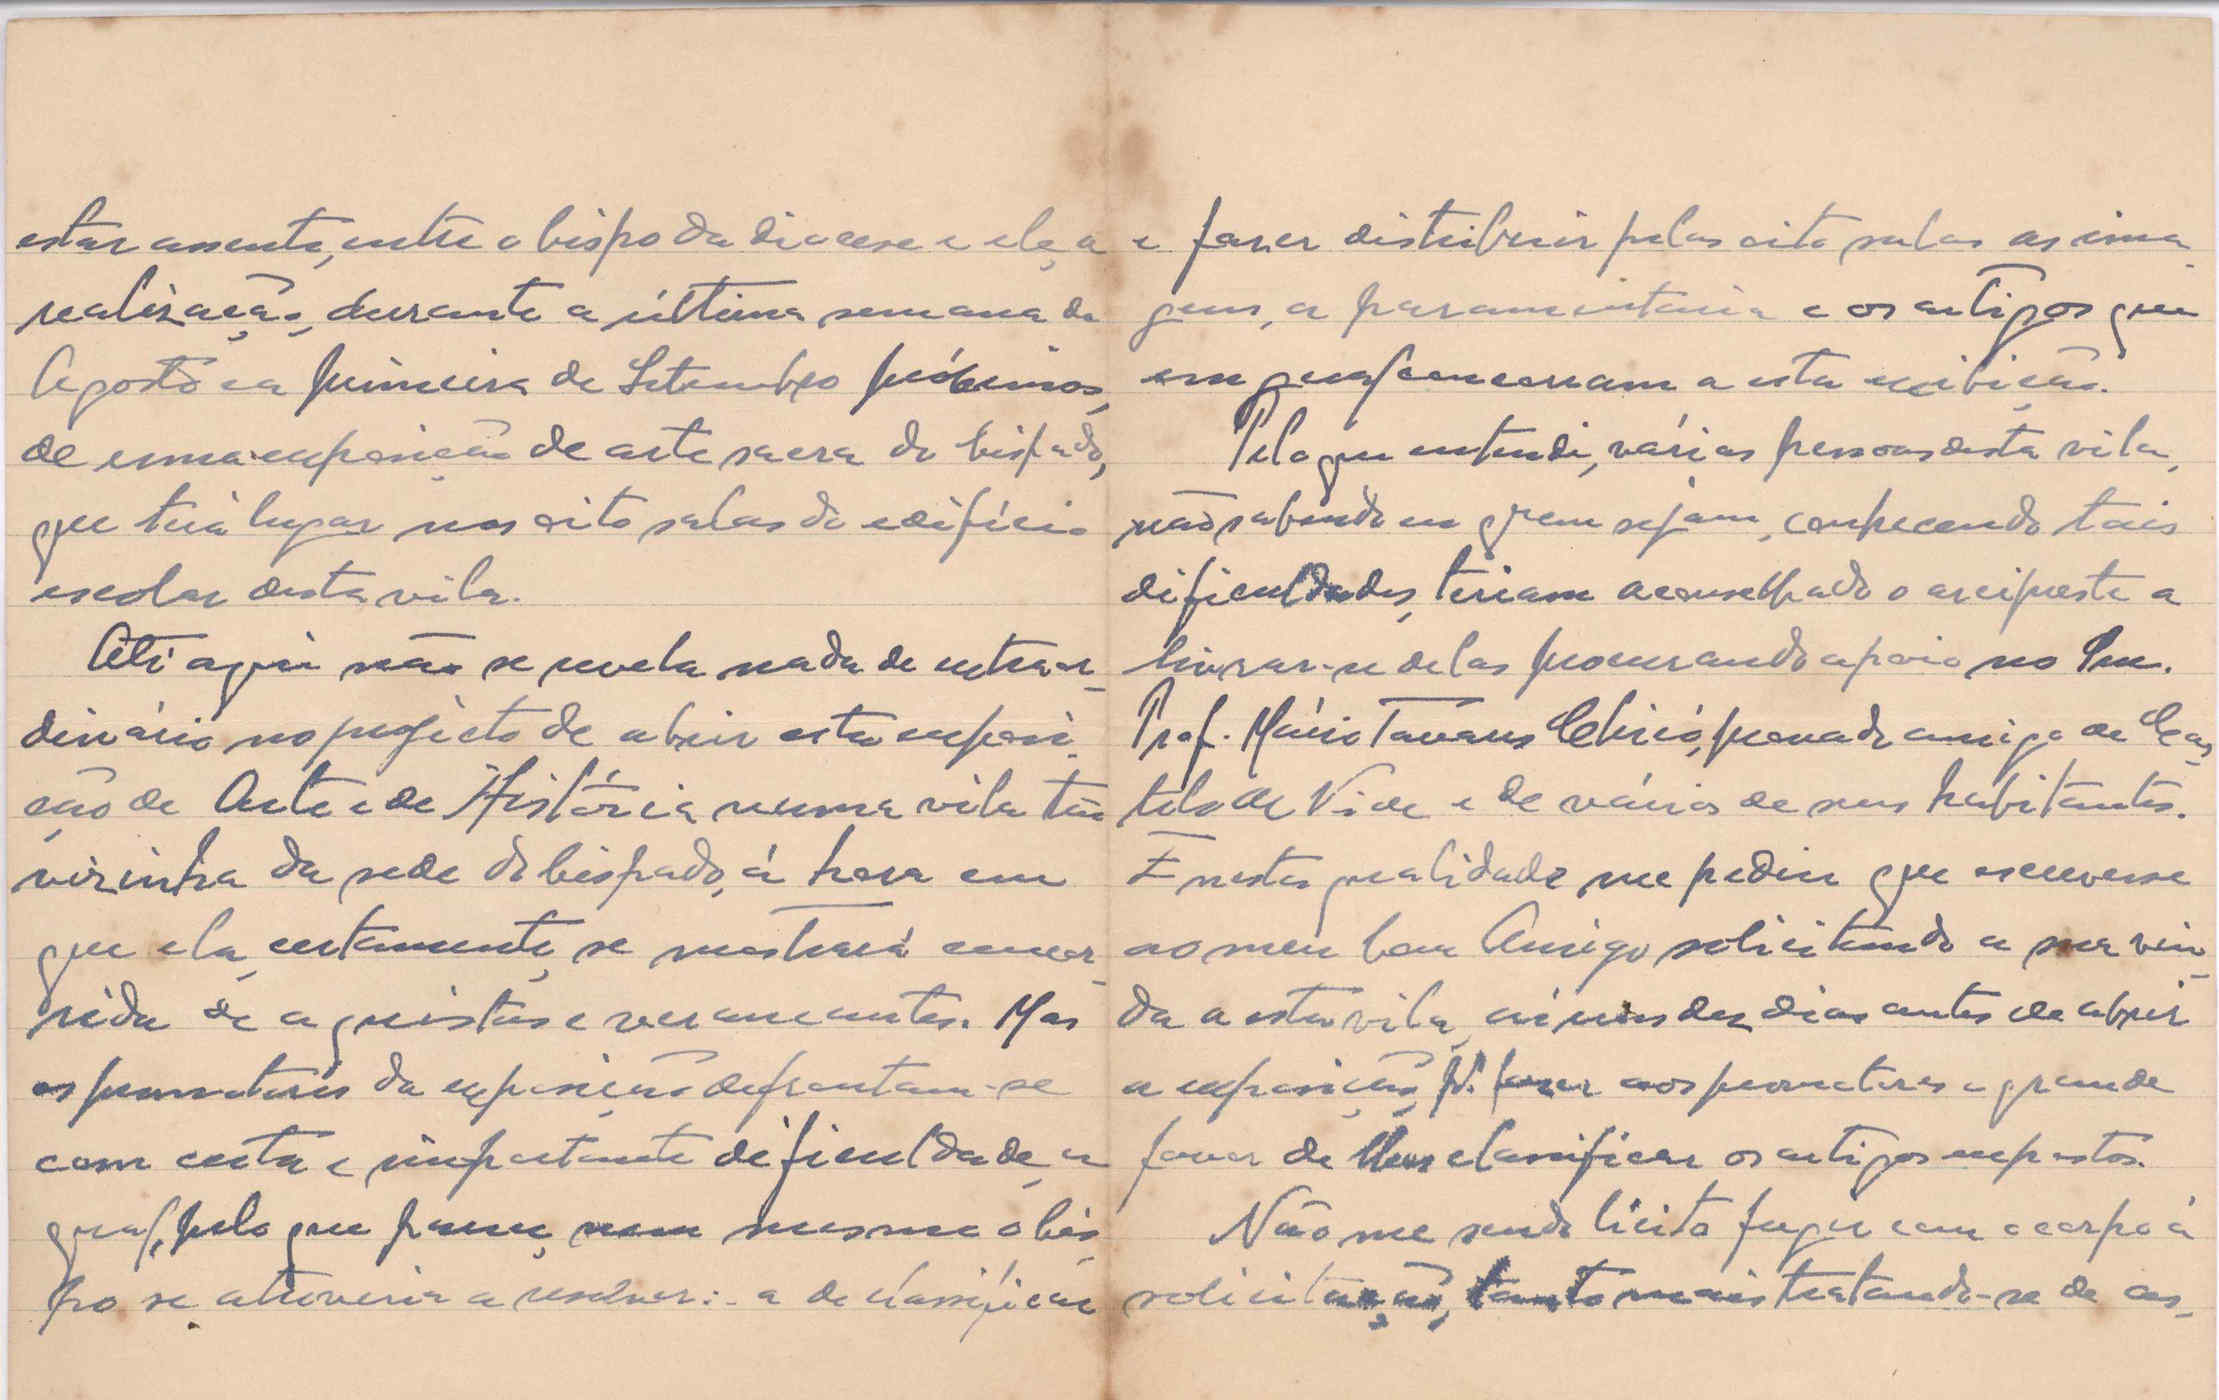 estar assente, entre o bispo da diocese e ele, a
realização, durante a última semana de
Agosto e a primeira de Setembro próximos,
de uma exposição de arte sacra do bispado,
que terá lugar nas oito salas do edifício
escolar desta vila.
Até aqui não se revela nada de extraor-
dinário no projecto de abrir esta exposi-
ção de Arte e de História numa vila tão
vizinha da sede do bispado, á hora em
que ela, certamente, se mostrará concor-
rida de aquistas e veraneantes. Mas
os promotores da exposição defrontam-se
com certa e importante dificuldade, a
qual, pelo que parece, nem mesmo o bis-
po se atreveria a resolver: - a de classificar
e fazer distribuir pelas oito salas as ima-
gens, a paramentaria e os artigos que
em geral concorram a esta exibição.
Pelo que entendi, várias pessoas desta vila,
não sabendo eu quem sejam, conhecendo tais
dificuldades, teriam aconselhado o arcipreste a
livrar-se delas procurando apoio no Sr.
Prof. Mário Tavares Chicó, provado amigo de Cas-
telo de Vide e de vários de seus habitantes.
E nesta qualidade me pediu que escrevesse
ao meu bom Amigo solicitando a sua vin-
da a esta vila, aí uns dez dias antes de abrir
a exposição, p.ª fazer aos promotores o grande
favor de lhes classificar os artigos expostos.
Não me sendo lícito fugir com o corpo á
solicitação, tanto mais tratando-se de as-